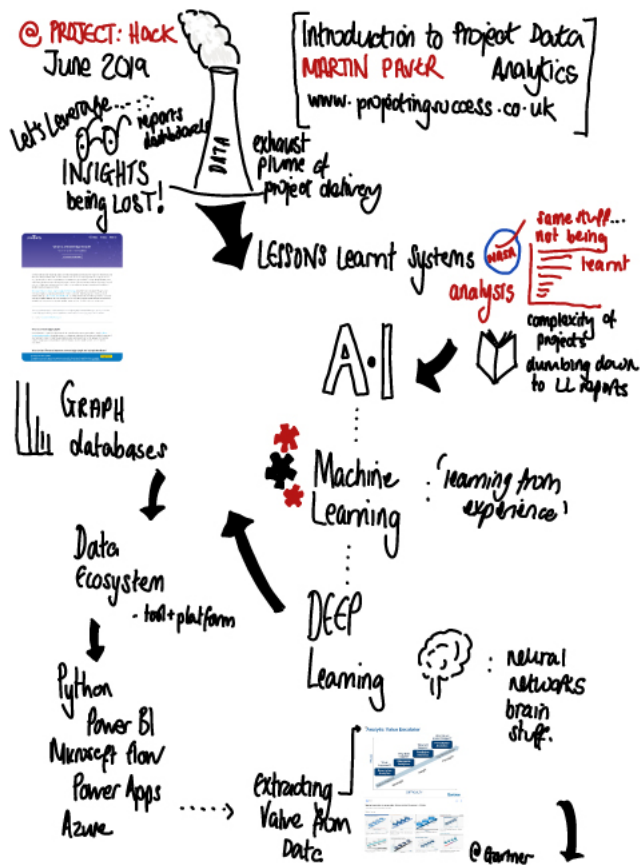 @ PROJECT: Hack
June 2019
Introduction to Project Data
MARTIN PAVER Analytics
www.projectingsuccess.co.uk
Let's leverage......
reports
dashboards
INSIGHTS
being LOST!
DATA
exhaust
plume of
project delivery
LESSONS Learnt Systems
NASA
same stuff...
not being
learnt
analysis
complexity of
projects
dumbing down
to LL reports
A.I
GRAPH
databases
Machine
Learning
: 'learning from
experience'
Data
Ecosystem
- tool + platform
DEEP
Learning
: neural
networks
brain
stuff.
Python
Power BI
Microsoft flow
Power Apps
Azure
extracting
Value from
Data
@Gartner